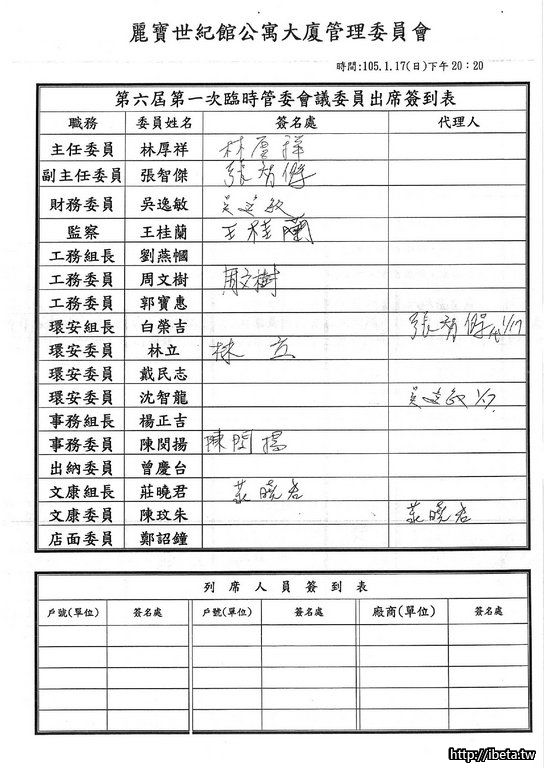 麗寶世紀館公寓大廈管理委員會
時間:105.1.17(日)下午20:20
第六屆第一次臨時管委會議委員出席簽到表
職務 委員姓名 簽名處 代理人
主任委員 林厚祥 林厚祥
副主任委員 張智傑 張智傑
財務委員 吳逸敏 吳逸敏
監察 王桂蘭 王桂蘭
工務組長 劉燕慖
工務委員 周文樹 周文樹
工務委員 郭寶惠
環安組長 白榮吉 張智傑代1/17
環安委員 林立 林立
環安委員 戴民志
環安委員 沈智龍 吳逸敏 1/17
事務組長 楊正吉
事務委員 陳閔揚 陳閔揚
出納委員 曾慶台
文康組長 莊曉君 莊曉君
文康委員 陳玟朱 莊曉君
店面委員 鄭詔鐘
列席人員簽到表
戶號(單位) 簽名處 戶號(單位) 簽名處 廠商(單位) 簽名處
http://ibeta.tw